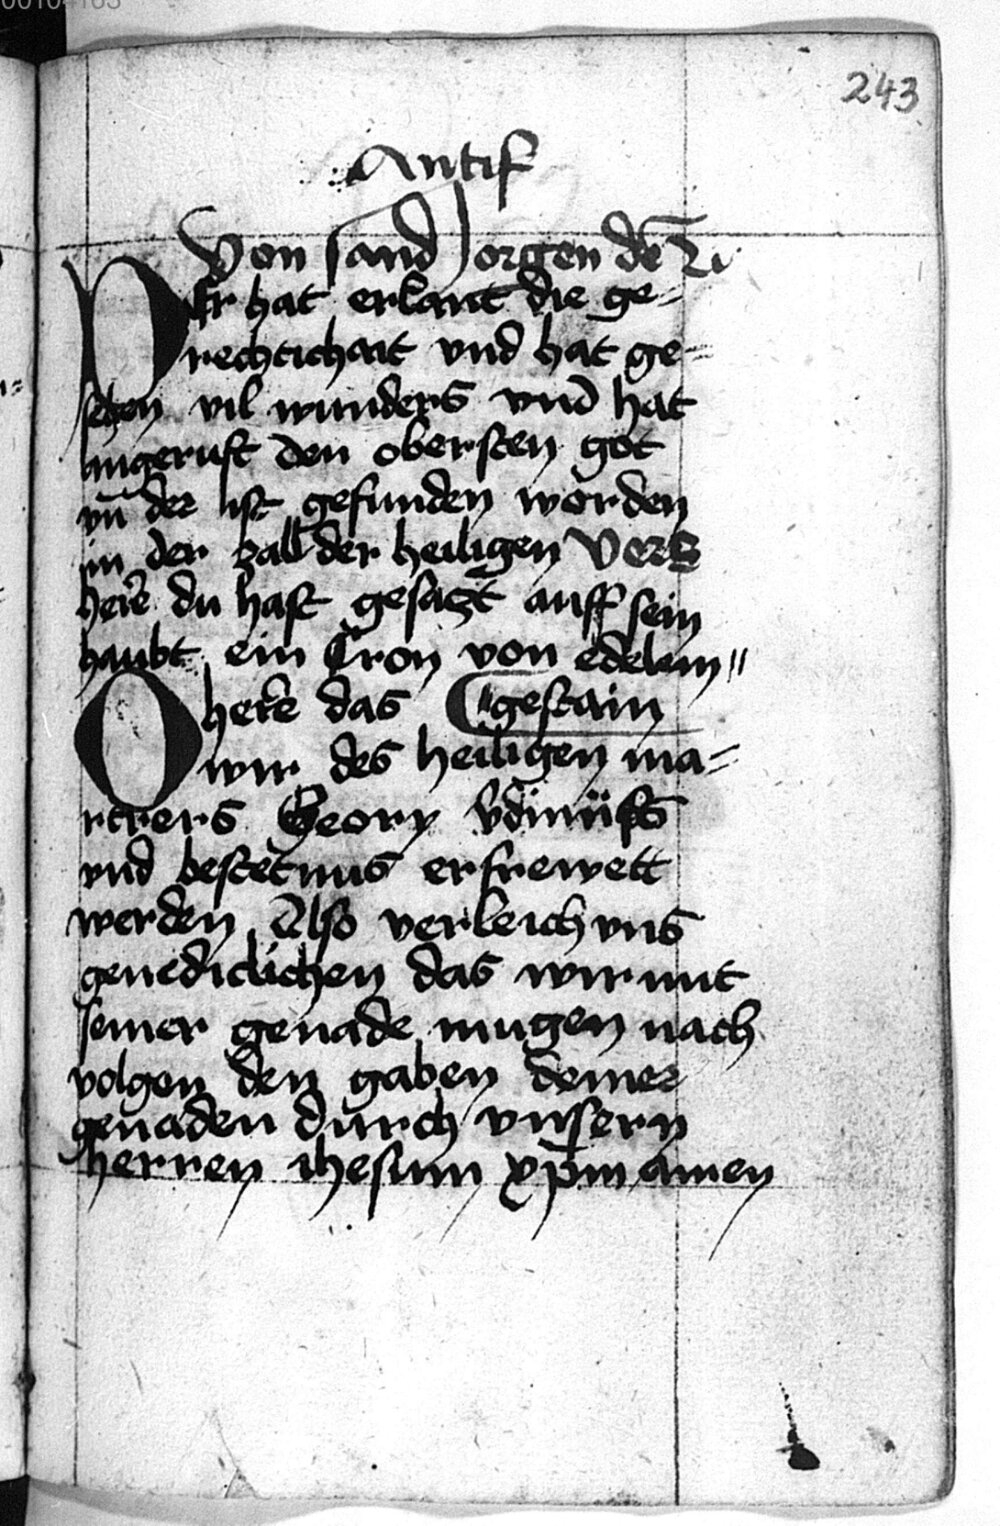 00104163
243
Antif
Von sand Jorgen dē Ri
Der hat erkant die ge-
rechtichait vnd hat ge-
sehen vil wunders vnd hat
angeruft den obersten got
vn̄ der ist gefunden worden
in der zall der heiligen Vers
here du hast gesatzt auff sein
haubt ein Cron von edelem
gestain
O here das
wir des heiligen ma-
rtrers Geory vdinüss
vnd bestetnus erfrewett
werden Also verleich vns
genediclichen das wir mit
seiner genade mugen nach
volgen den gaben deiner
genaden durch vnsern
herren ihesum xp̄m amen